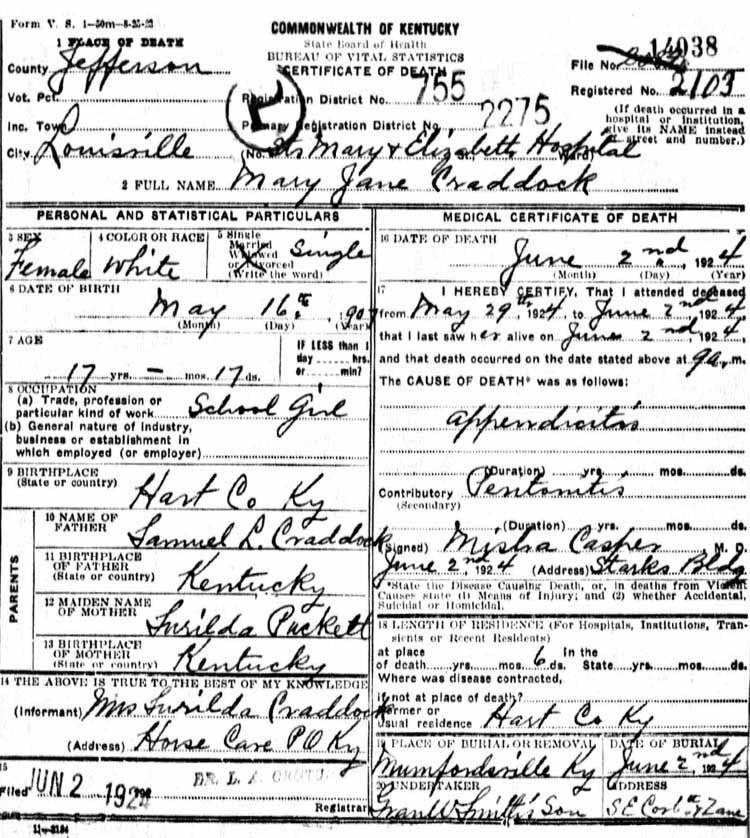 Form V. S. 1-50m-8-25-22
COMMONWEALTH OF KENTUCKY
State Board of Health
BUREAU OF VITAL STATISTICS
CERTIFICATE OF DEATH
1 PLACE OF DEATH
County Jefferson
File No. 14038
Registered No. 2103
Vot. Pct.
Registration District No. 755
(If death occurred in a hospital or institution, give its NAME instead of street and number.)
Inc. Town
Primary Registration District No. 2275
City Louisville (No. Sts Mary & Elizabeth Hospital St. Ward)
2 FULL NAME Mary Jane Craddock
PERSONAL AND STATISTICAL PARTICULARS
3 SEX Female
4 COLOR OR RACE White
5 Single Married Widowed or Divorced (Write the word) Single
6 DATE OF BIRTH
May 16th, 1907
(Month) (Day) (Year)
7 AGE
17 yrs. – mos. 17 ds.
IF LESS than 1 day hrs. or min?
8 OCCUPATION
(a) Trade, profession or particular kind of work School Girl
(b) General nature of industry, business or establishment in which employed (or employer)
9 BIRTHPLACE
(State or country) Hart Co Ky
PARENTS
10 NAME OF FATHER Samuel L. Craddock
11 BIRTHPLACE OF FATHER (State or country) Kentucky
12 MAIDEN NAME OF MOTHER Surilda Puckett
13 BIRTHPLACE OF MOTHER (State or country) Kentucky
14 THE ABOVE IS TRUE TO THE BEST OF MY KNOWLEDGE
(Informant) Mrs Surilda Craddock
(Address) Horse Cave PO Ky
15
Filed JUN 2 1924
Registrar
MEDICAL CERTIFICATE OF DEATH
16 DATE OF DEATH
June 2nd, 1924
(Month) (Day) (Year)
17 I HEREBY CERTIFY, That I attended deceased
from May 29th, 1924, to June 2nd 1924
that I last saw her alive on June 2nd, 1924,
and that death occurred on the date stated above at 9 a. m.
The CAUSE OF DEATH* was as follows:
Appendicitis
(Duration) yrs. mos. ds.
Contributory Peritonitis
(Secondary)
(Duration) yrs. mos. ds.
(Signed) Misha Casper M. D.
June 2nd 1924 (Address) Starks Bldg
*State the Disease Causing Death, or, in deaths from Violent
Causes state (1) Means of Injury; and (2) whether Accidental,
Suicidal or Homicidal.
18 LENGTH OF RESIDENCE (For Hospitals, Institutions, Transients or Recent Residents)
at place of death yrs. mos. 6 ds. In the State yrs. mos. ds.
Where was disease contracted,
if not at place of death?
Former or usual residence Hart Co Ky
19 PLACE OF BURIAL OR REMOVAL
Mumfordsville Ky
DATE OF BURIAL
June 2nd, 1924
20 UNDERTAKER
Smith's Son
ADDRESS